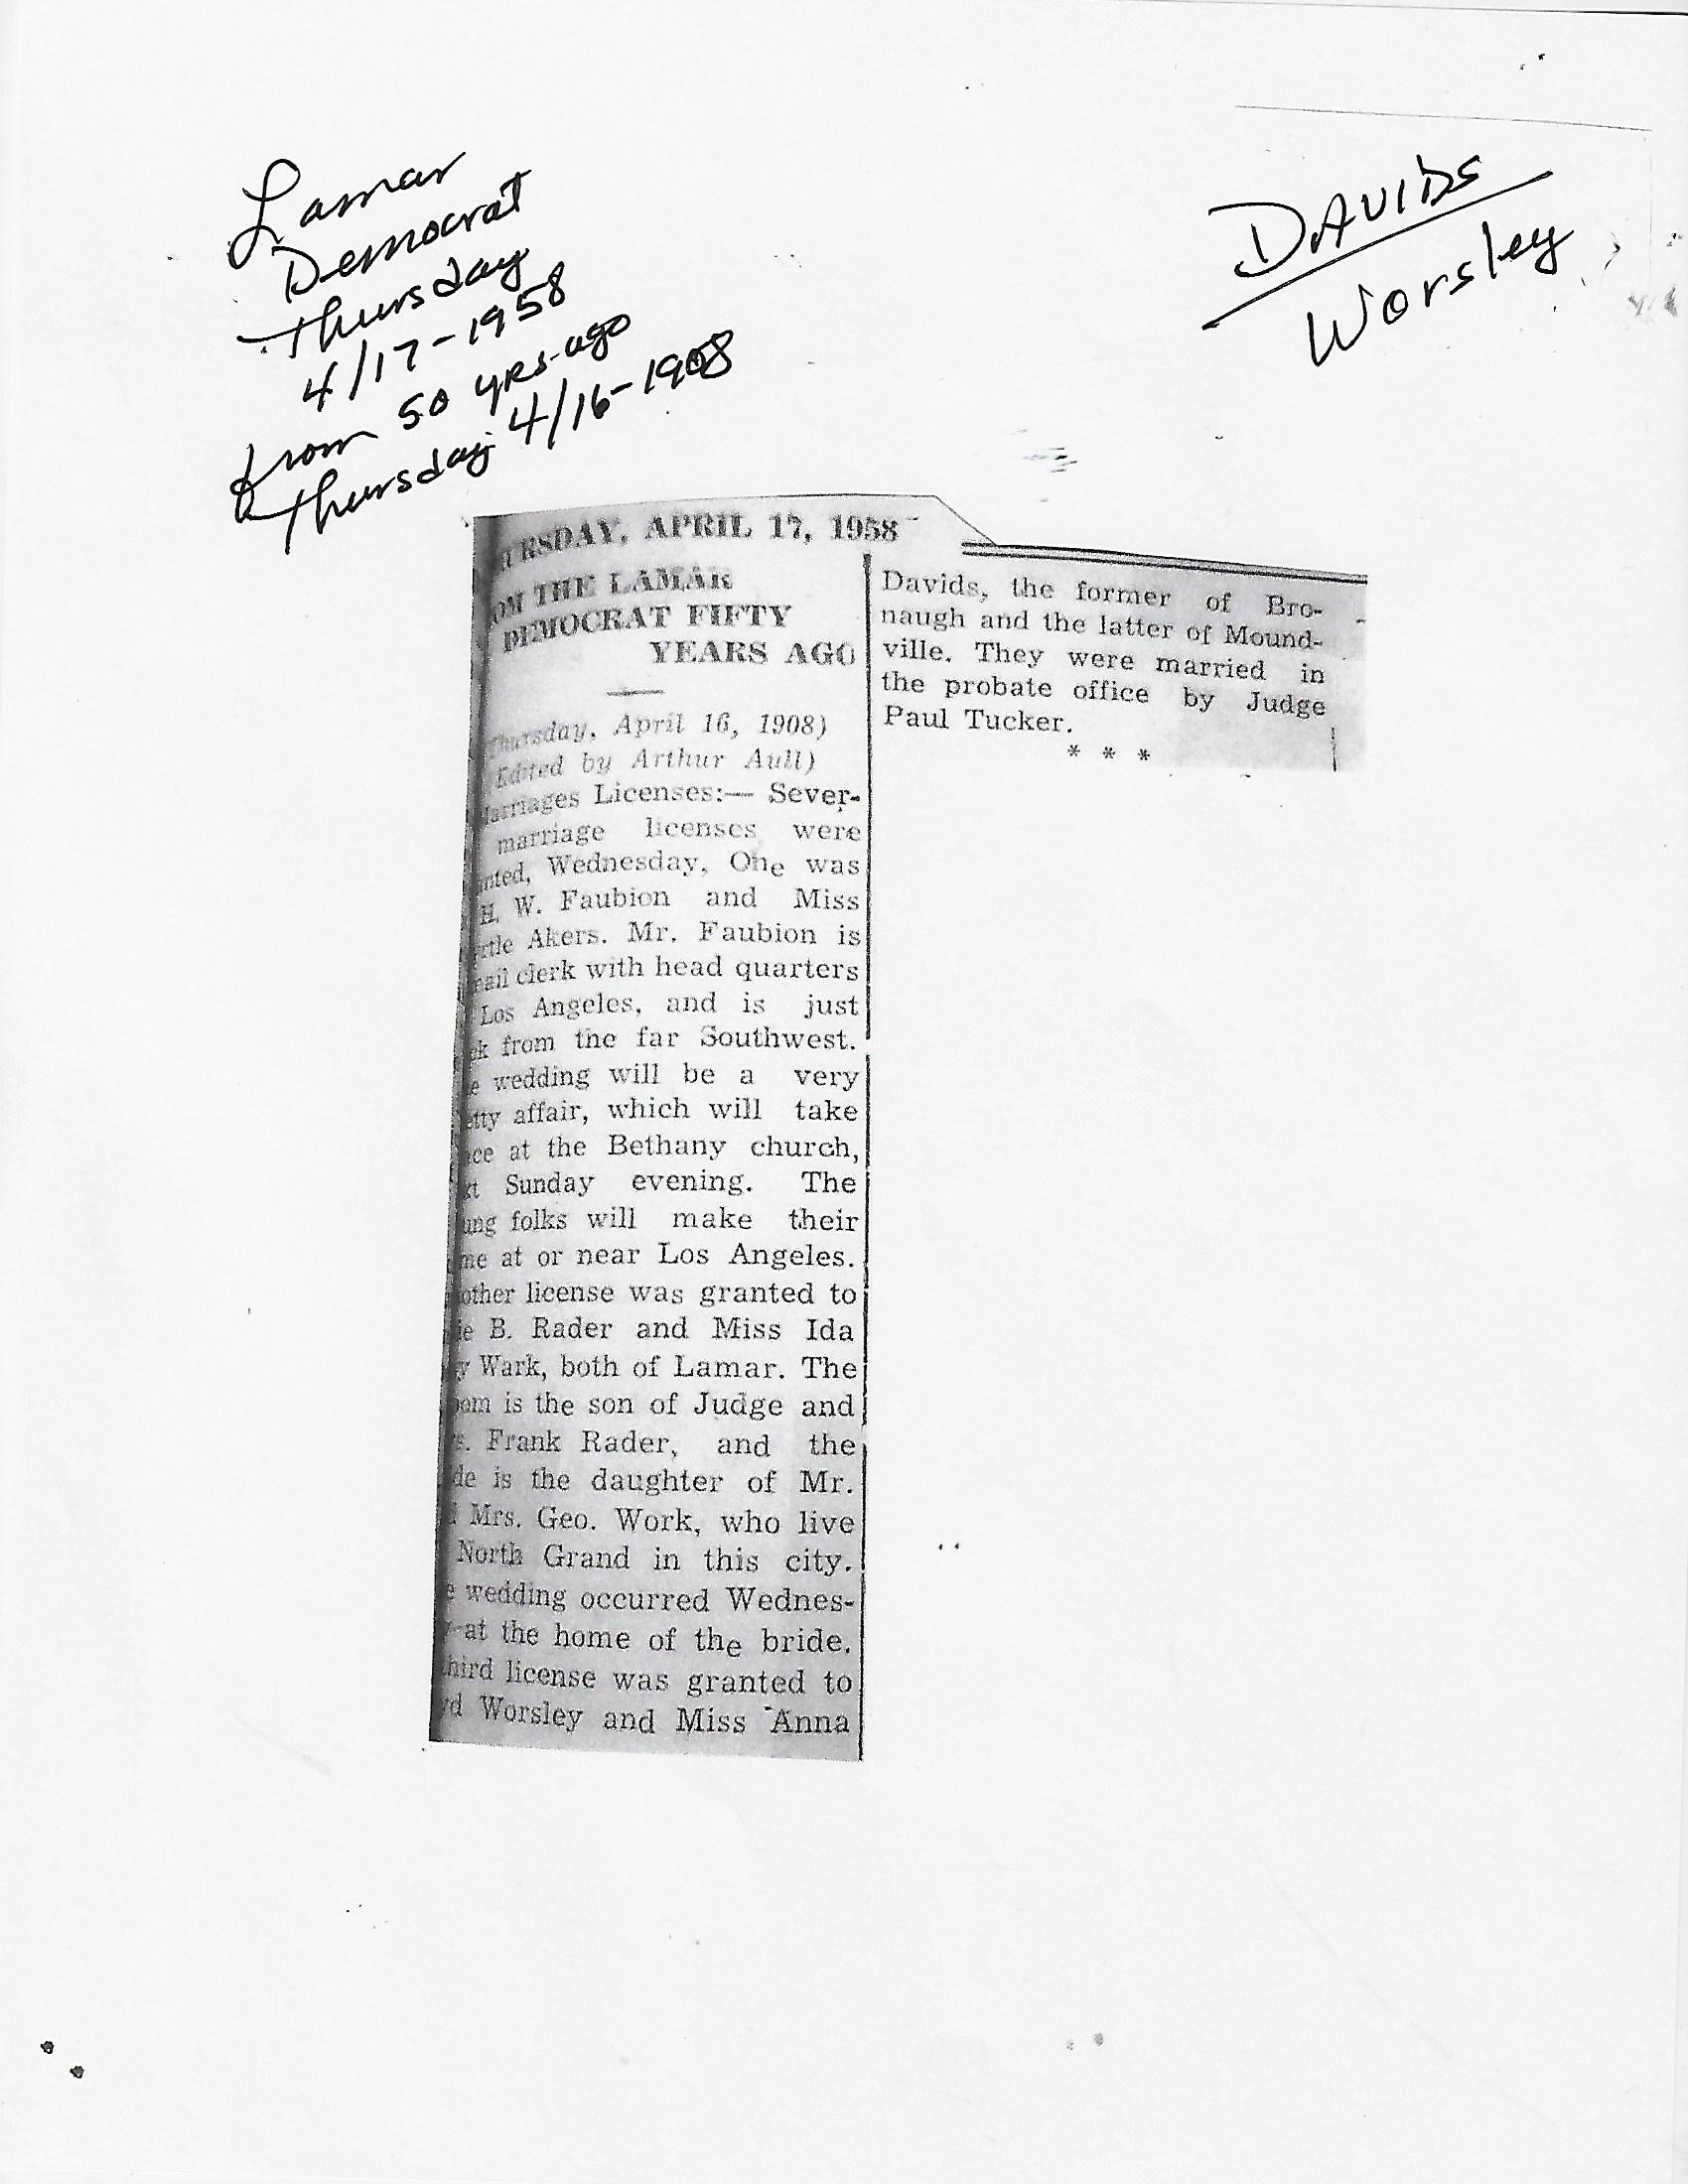 Lamar
Democrat
Thursday
4/17-1958
from 50 yrs-ago
Thursday 4/16-1908
DAVIDS
Worsley
URSDAY, APRIL 17, 1958
OM THE LAMAR
DEMOCRAT FIFTY
YEARS AGO
Thursday, April 16, 1908)
Edited by Arthur Aull)
arriages Licenses:— Sever-
marriage licenses were
nted, Wednesday, One was
H. W. Faubion and Miss
rtle Akers. Mr. Faubion is
ail clerk with head quarters
Los Angeles, and is just
ck from the far Southwest.
e wedding will be a very
etty affair, which will take
ace at the Bethany church,
xt Sunday evening. The
ung folks will make their
me at or near Los Angeles.
other license was granted to
ie B. Rader and Miss Ida
y Wark, both of Lamar. The
oom is the son of Judge and
rs. Frank Rader, and the
de is the daughter of Mr.
d Mrs. Geo. Work, who live
North Grand in this city.
e wedding occurred Wednes-
y at the home of the bride.
hird license was granted to
yd Worsley and Miss Anna
Davids, the former of Bro-
naugh and the latter of Mound-
ville. They were married in
the probate office by Judge
Paul Tucker.
* * *